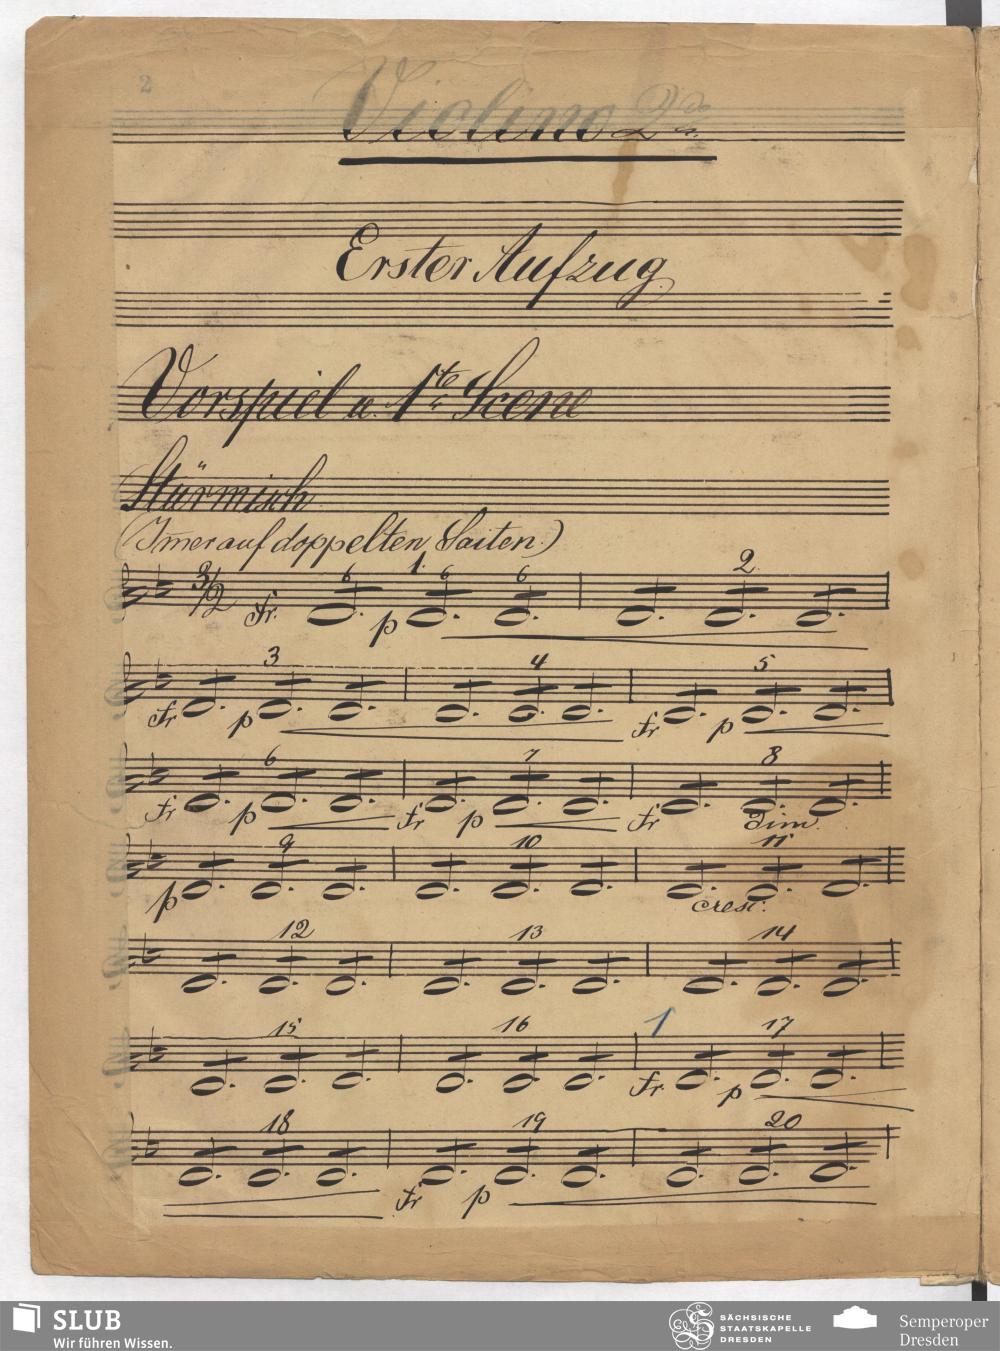 2
Violino 2do
Erster Aufzug.
Vorspiel u. 1te Scene
Stürmisch
(Imer auf doppelten Saiten.)
3/2 6 1. 6 6 2.
fr. p
3 4 5
fr p fr p
6 7 8
fr p fr p fr dim.
9 10 11
p cresc:
12 13 14
15 16 1 17
fr. p
18 19 20
fr p
SLUB
Wir führen Wissen.
SÄCHSISCHE
STAATSKAPELLE
DRESDEN
Semperoper
Dresden